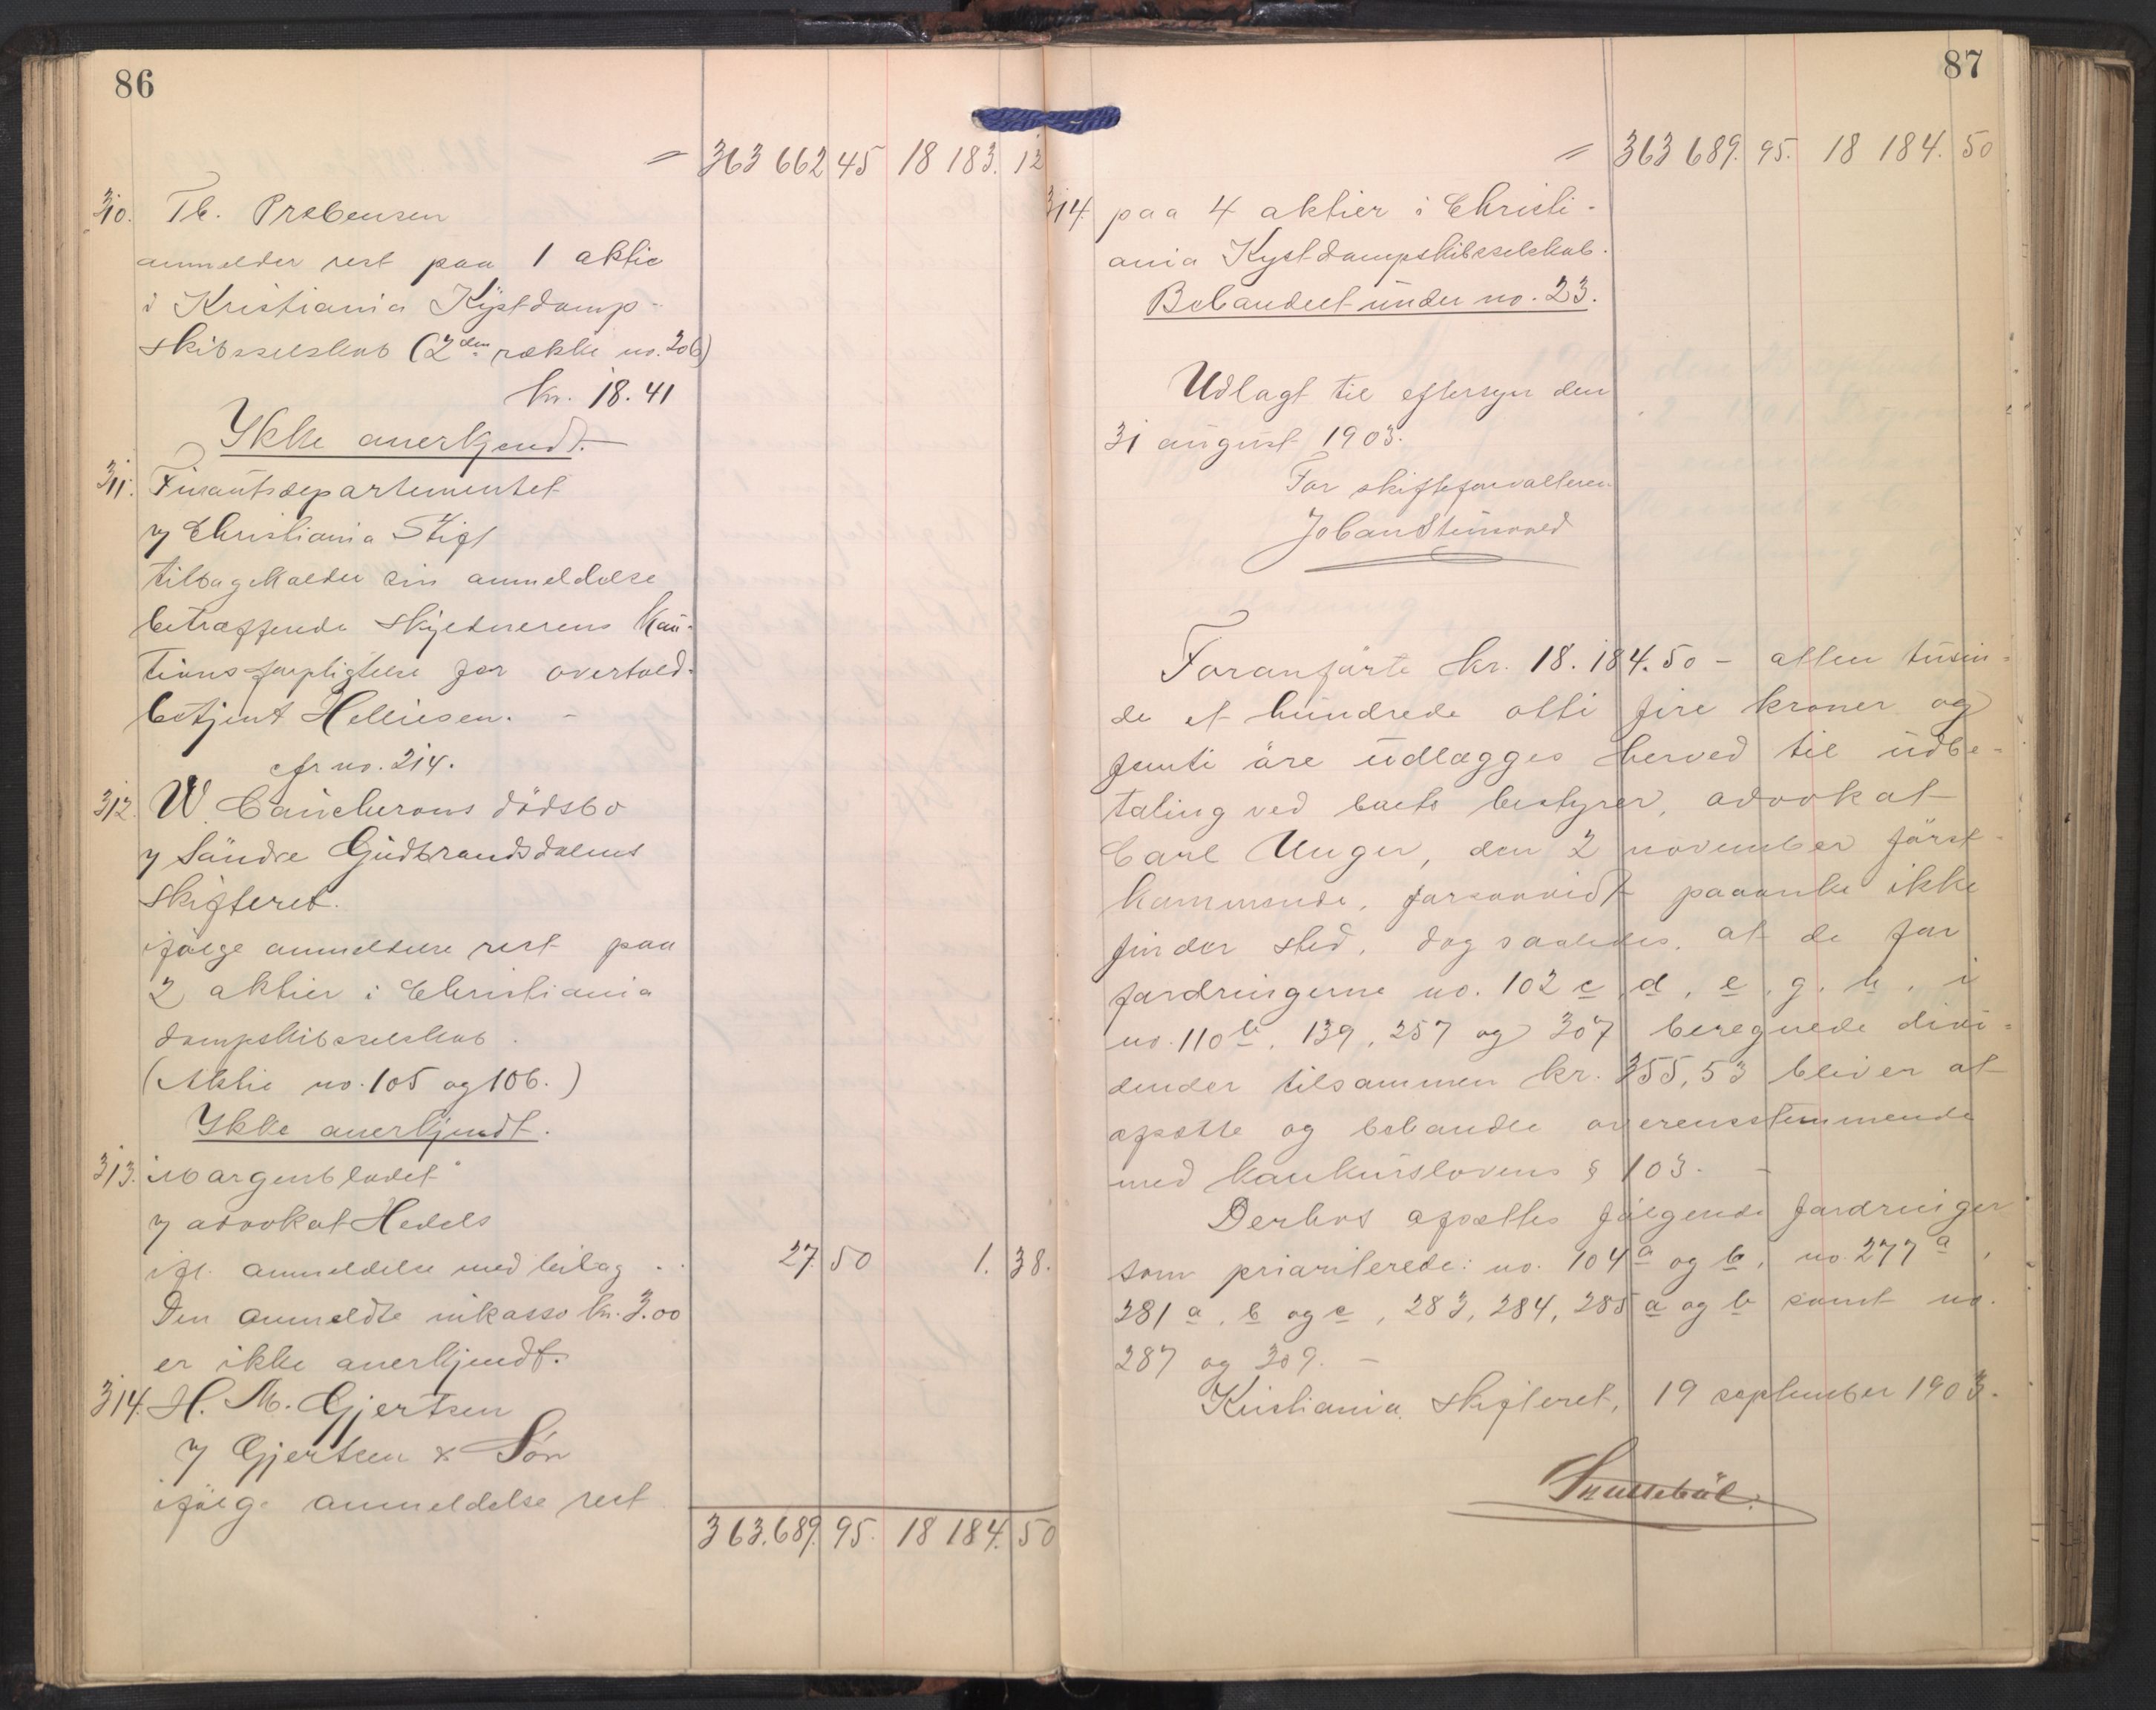 86
= 363 662 45 18 183. 12
310. Th. Prebensen
anmelder rest paa 1 aktie
i Kristiania Kystdamp-
skibsselskab (2den række no. 206)
kr. 18.41
Ikke anerkjendt.
311. Finantsdepartementet
v/ Christiania Stift
tilbagekalder sin anmeldelse
betræffende skyldnerens kau-
tionsforpligtelse for overtold-
betjent Helliesen. -
cfr no. 214.
312. W. dödsbo
v/ Söndre Gudbrandsdalens
skifteret.
ifölge anmeldelse rest paa
2 aktier i Christiania
dampskibsselskab.
(Aktie no. 105 og 106.)
Ikke anerkjendt.
313. "Morgenbladet"
v/ advokat Hedels
ifl. anmeldelse med bilag . . 27. 50 1. 38.
Den anmeldte inkasso kr. 3.00
er ikke anerkjendt.
314. H. M. Gjertsen
v/ Gjertsen & Sön
ifölge anmeldelse rest
363.689. 95. 18 184. 50
87
= 363 689. 95. 18 184. 50
314. paa 4 aktier i Christi-
ania Kystdampskibsselskab.
Behandlet under no. 23.
Udlagt til eftersyn den
31 august 1903.
For skifteforvalteren
Johan
Foranförte kr. 18.184.50 - atten tusin-
de et hundrede otti fire kroner og
femti öre udlægges herved til udbe-
taling ved boets bestyrer, advokat
Carl Unger, den 2 november först-
kommende, forsaavidt paaanke ikke
finder sted, dog saaledes, at de for
fordringerne no. 102 c, d, e, g, h, i
no. 110 b, 139, 257 og 307 beregnede divi-
dender tilsammen kr. 355,53 bliver at
afsætte og behandle overensstemmende
med konkurslovens § 103. -
Derhos afsættes fölgende fordringer
som prioriterede: no. 104 a og b, no. 277 a,
281 a, b og c, 283, 284, 285 a og b samt no.
287 og 309. -
Kristiania skifteret, 19 september 1903.